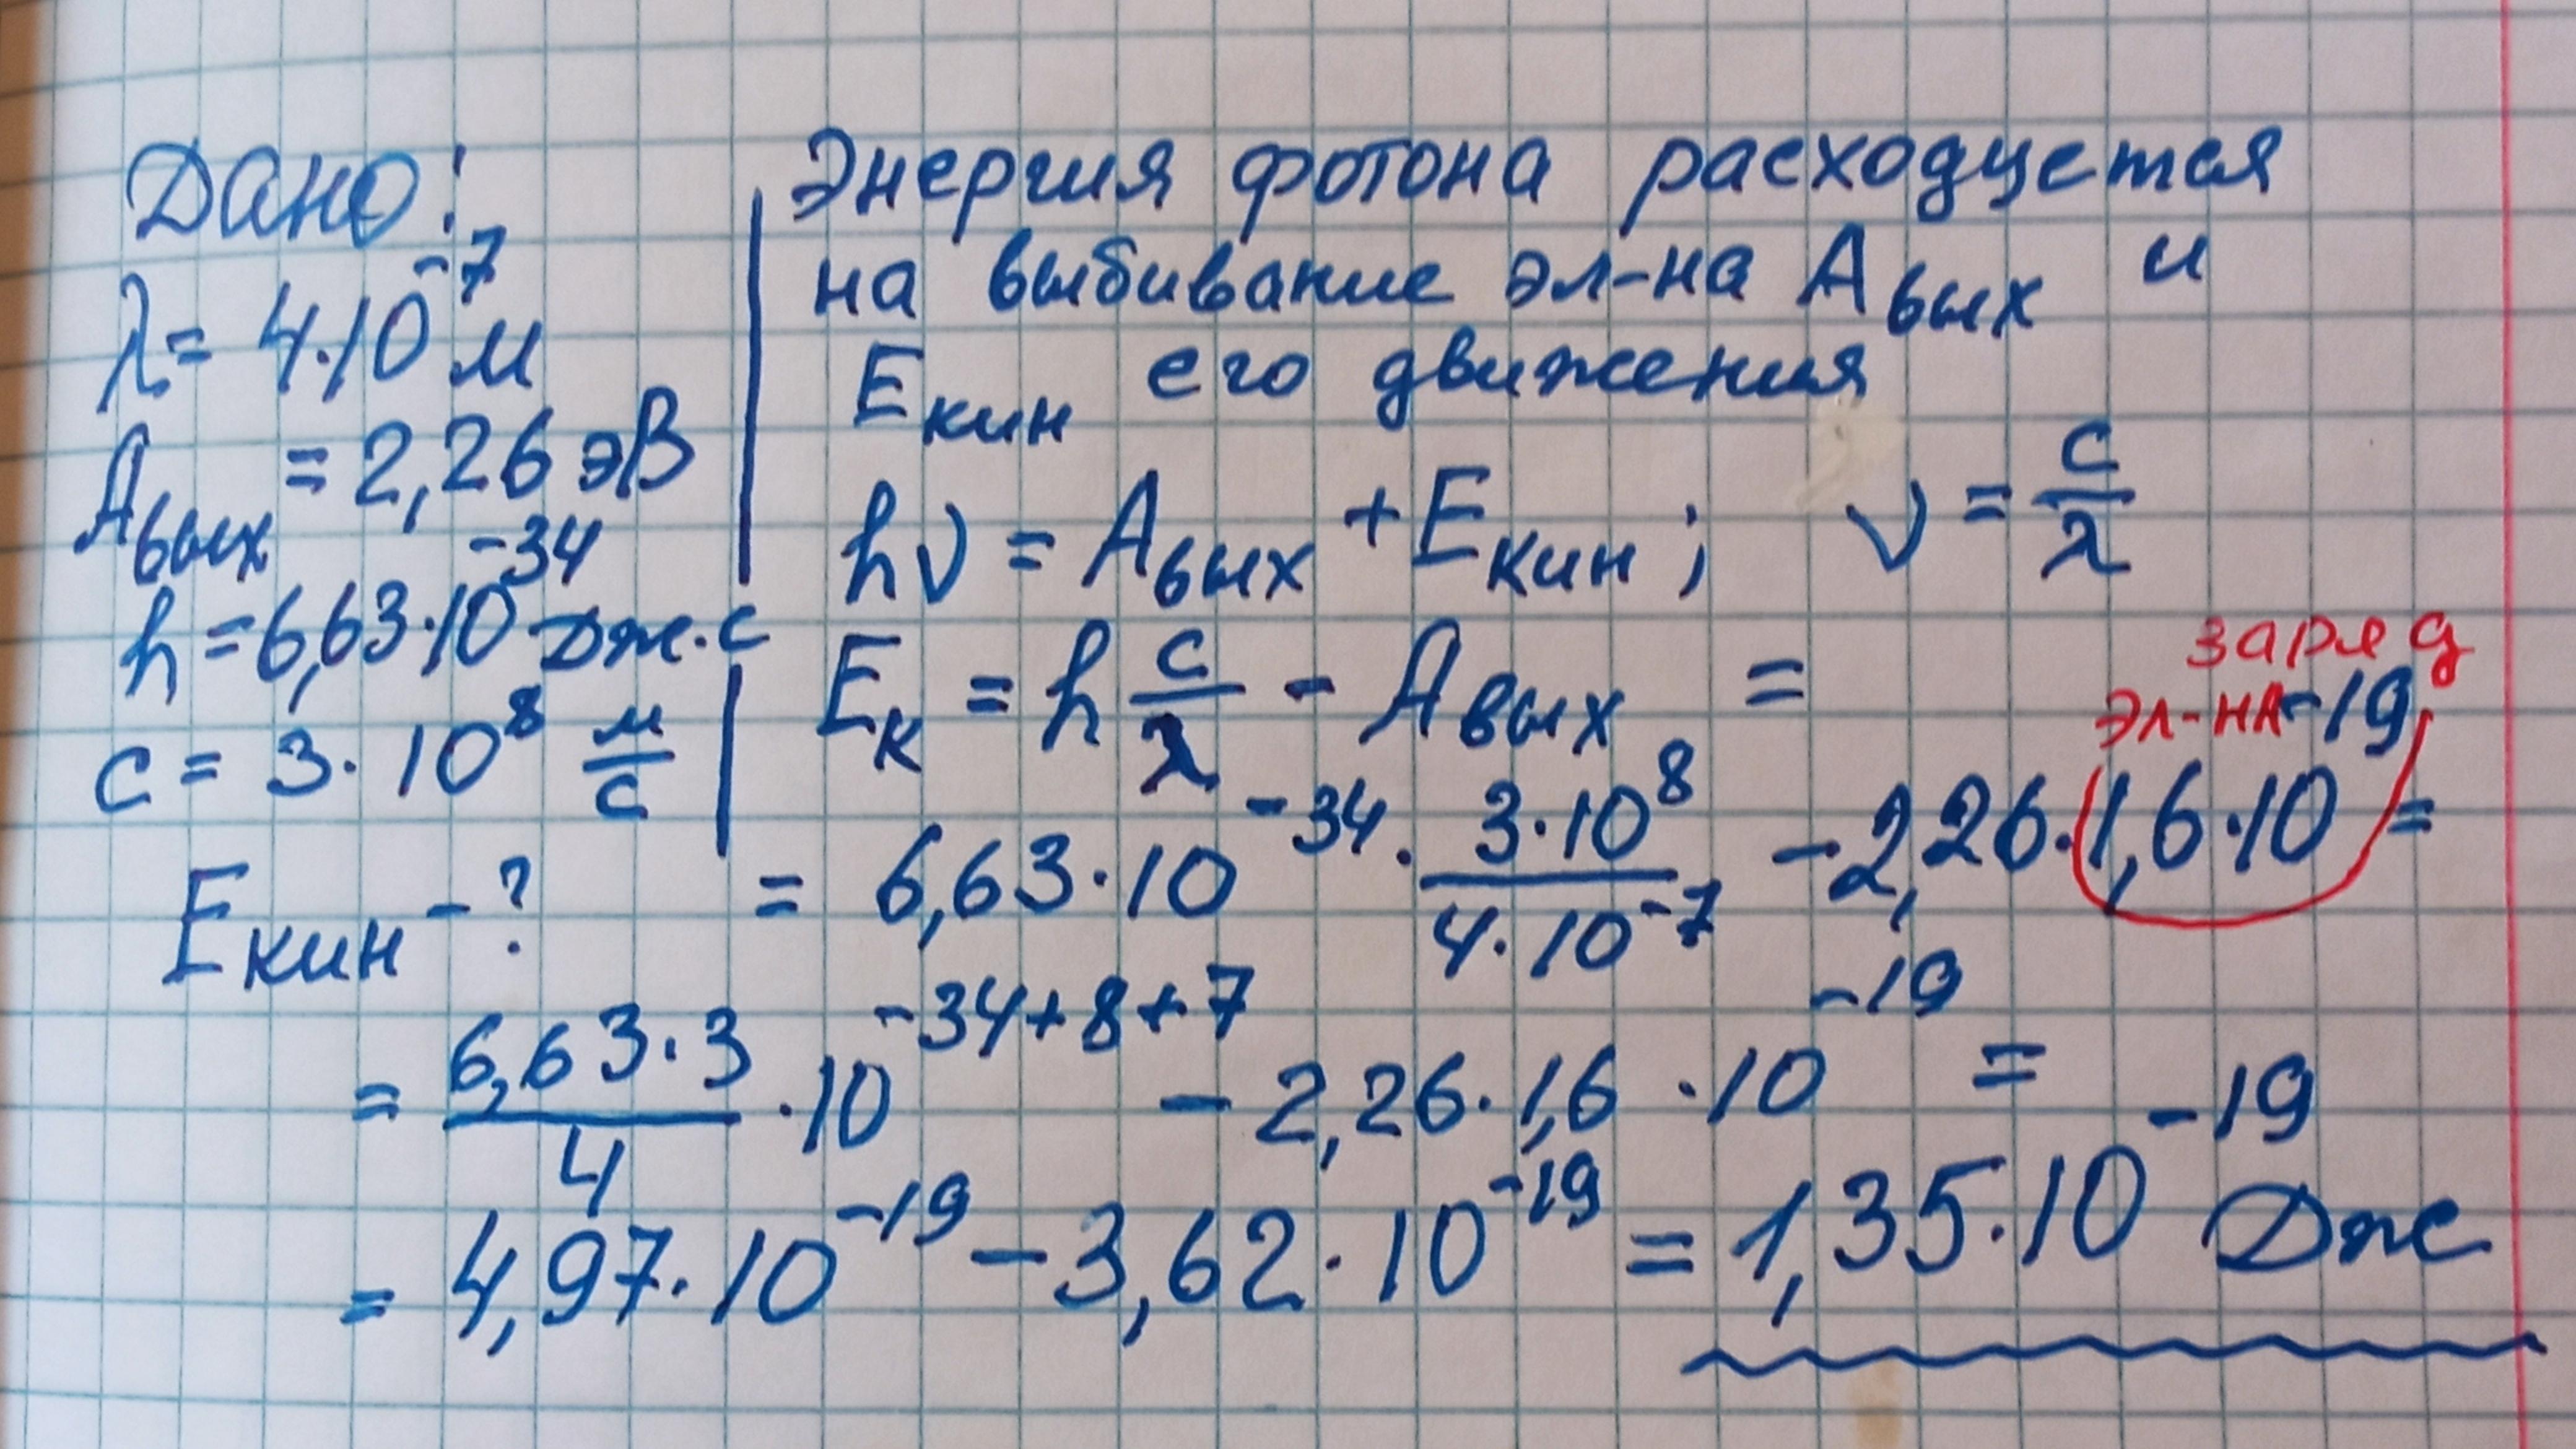 Дано:
λ = 4·10⁻⁷ м
Aвых = 2,26 эВ
h = 6,63·10⁻³⁴ Дж·с
c = 3·10⁸ м/с
Eкин - ?
Энергия фотона расходуется
на выбивание эл-на Aвых и
Eкин его движения
hν = Aвых + Eкин; ν = c/λ
Eк = h c/λ - Aвых =
заряд
эл-на
= 6,63·10⁻³⁴ · 3·10⁸/4·10⁻⁷ - 2,26·1,6·10⁻¹⁹ =
= 6,63·3/4 ·10⁻³⁴⁺⁸⁺⁷ - 2,26·1,6·10⁻¹⁹ =
= 4,97·10⁻¹⁹ - 3,62·10⁻¹⁹ = 1,35·10⁻¹⁹ Дж